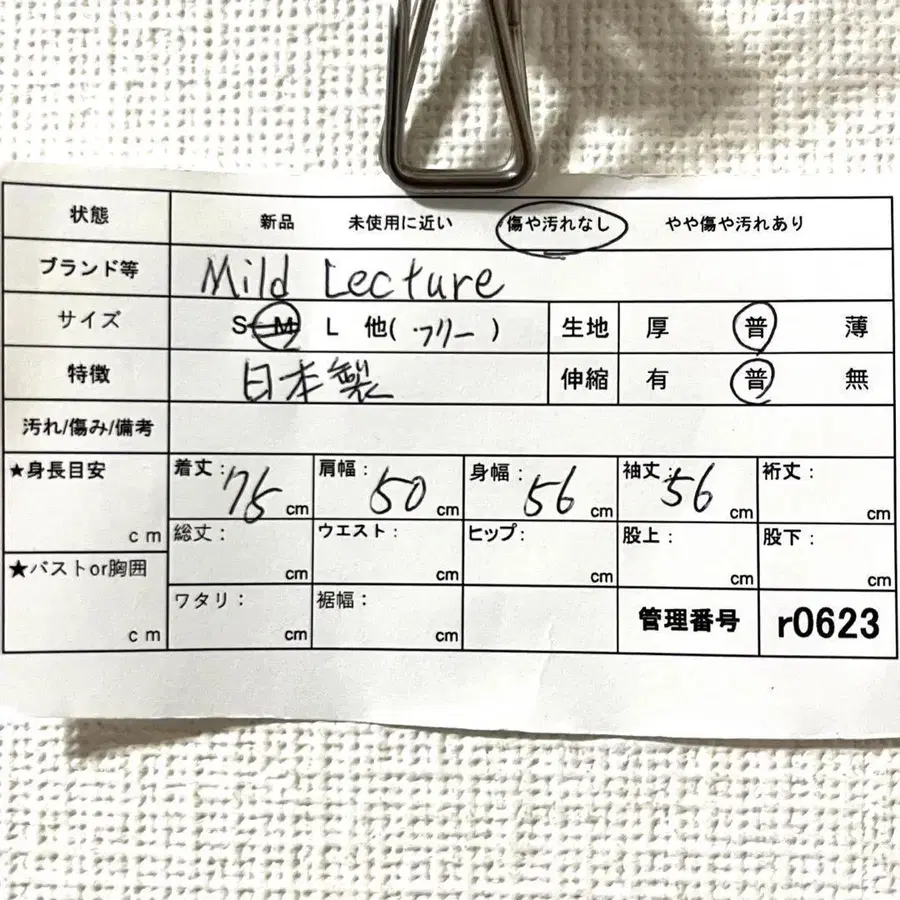 状態 新品 未使用に近い 傷や汚れなし やや傷や汚れあり
ブランド等 Mild Lecture
サイズ S M L 他( フリー ) 生地 厚 普 薄
特徴 日本製 伸縮 有 普 無
汚れ/傷み/備考
★身長目安 cm
着丈: 75 cm 肩幅: 50 cm 身幅: 56 cm 袖丈: 56 cm 裄丈: cm
総丈: cm ウエスト: cm ヒップ: cm 股上: cm 股下: cm
★バストor胸囲 cm
ワタリ: cm 裾幅: cm 管理番号 r0623